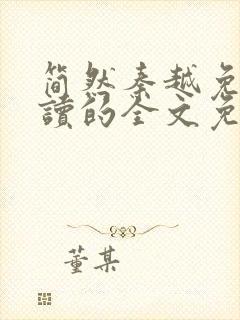 简然秦越免
讀的全文免
董某